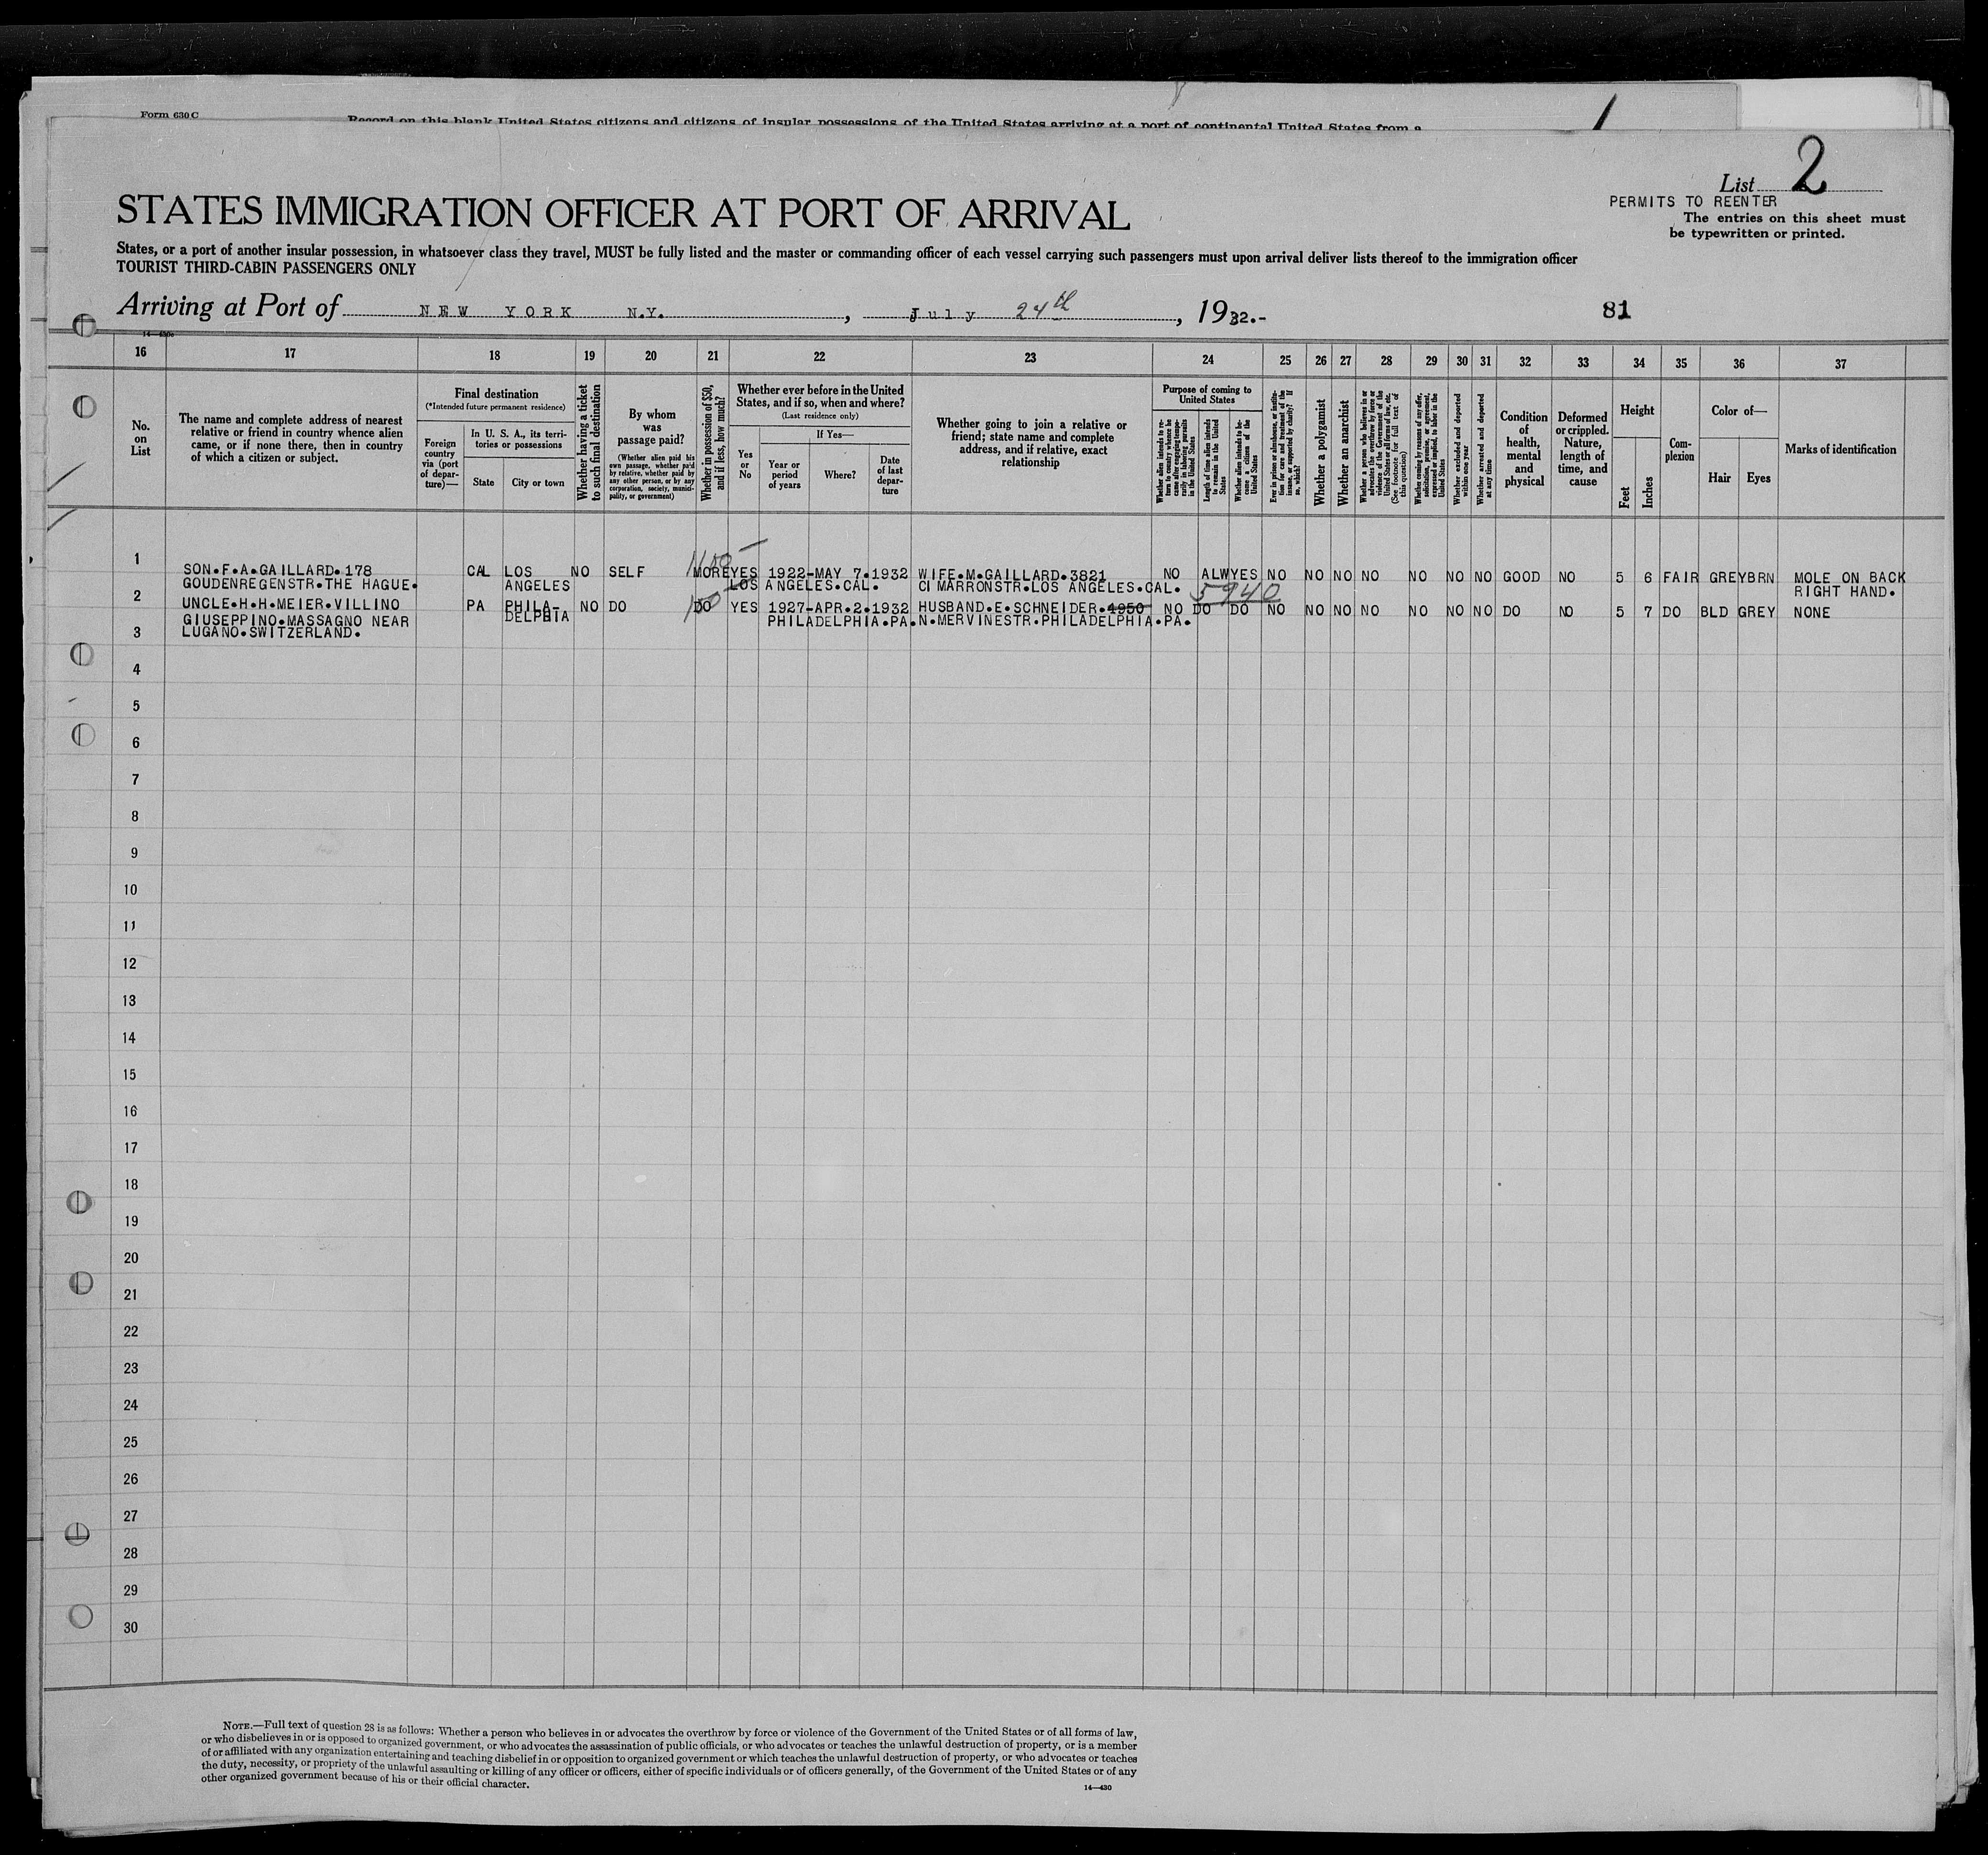 Form 630 C
Record on this blank United States citizens and citizens of insular possessions of the United States arriving at a port of continental United States from a
1
List 2
PERMITS TO REENTER
The entries on this sheet must
be typewritten or printed.
STATES IMMIGRATION OFFICER AT PORT OF ARRIVAL
States, or a port of another insular possession, in whatsoever class they travel, MUST be fully listed and the master or commanding officer of each vessel carrying such passengers must upon arrival deliver lists thereof to the immigration officer
TOURIST THIRD-CABIN PASSENGERS ONLY
Arriving at Port of NEW YORK N.Y., July 24th, 1932.-
81
16 17 18 19 20 21 22 23 24 25 26 27 28 29 30 31 32 33 34 35 36 37
No. on List
The name and complete address of nearest
relative or friend in country whence alien
came, or if none there, then in country
of which a citizen or subject.
Final destination
(*Intended future permanent residence)
Foreign country via (port of departure)—
In U. S. A., its territories or possessions
State
City or town
Whether having a ticket to such final destination
By whom was passage paid?
(Whether alien paid his own passage, whether paid by relative, whether paid by any other person, or by any corporation, society, municipality, or government)
Whether in possession of $50, and if less, how much?
Whether ever before in the United
States, and if so, when and where?
(Last residence only)
Yes or No
If Yes—
Year or period of years
Where?
Date of last departure
Whether going to join a relative or
friend; state name and complete
address, and if relative, exact
relationship
Purpose of coming to United States
Whether alien intends to return to country whence he came after engaging temporarily in laboring pursuits in the United States
Length of time alien intends to remain in the United States
Whether alien intends to become a citizen of the United States
Ever in prison or almshouse, or institution for care and treatment of the insane, or supported by charity? If so, which?
Whether a polygamist
Whether an anarchist
Whether a person who believes in or advocates the overthrow by force or violence of the Government of the United States or all forms of law, etc. (See footnote for full text of this question)
Whether coming by reasons of any offer, solicitation, promise, or agreement, expressed or implied, to labor in the United States
Whether excluded and deported within one year
Whether arrested and deported at any time
Condition of health, mental and physical
Deformed or crippled. Nature, length of time, and cause
Height
Feet
Inches
Complexion
Color of—
Hair
Eyes
Marks of identification
1 SON.F.A.GAILLARD.178 CAL LOS NO SELF MORE YES 1922-MAY 7.1932 WIFE.M.GAILLARD.3821 NO ALW YES NO NO NO NO NO NO NO GOOD NO 5 6 FAIR GREY BRN MOLE ON BACK
GOUDENREGENSTR.THE HAGUE. ANGELES LOS ANGELES.CAL. CIMARRONSTR.LOS ANGELES.CAL. RIGHT HAND.
5940
2 UNCLE.H.H.MEIER.VILLINO PA PHILA- NO DO DO YES 1927-APR.2.1932 HUSBAND.E.SCHNEIDER.4950 NO DO DO NO NO NO NO NO NO NO DO NO 5 7 DO BLD GREY NONE
GIUSEPPINO.MASSAGNO NEAR DELPHIA PHILADELPHIA.PA. N.MERVINESTR.PHILADELPHIA.PA.
3 LUGANO.SWITZERLAND.
4
5
6
7
8
9
10
11
12
13
14
15
16
17
18
19
20
21
22
23
24
25
26
27
28
29
30
NOTE.—Full text of question 28 is as follows: Whether a person who believes in or advocates the overthrow by force or violence of the Government of the United States or of all forms of law,
or who disbelieves in or is opposed to organized government, or who advocates the assassination of public officials, or who advocates or teaches the unlawful destruction of property, or is a member
of or affiliated with any organization entertaining and teaching disbelief in or opposition to organized government or which teaches the unlawful destruction of property, or who advocates or teaches
the duty, necessity, or propriety of the unlawful assaulting or killing of any officer or officers, either of specific individuals or of officers generally, of the Government of the United States or of any
other organized government because of his or their official character.
14—430